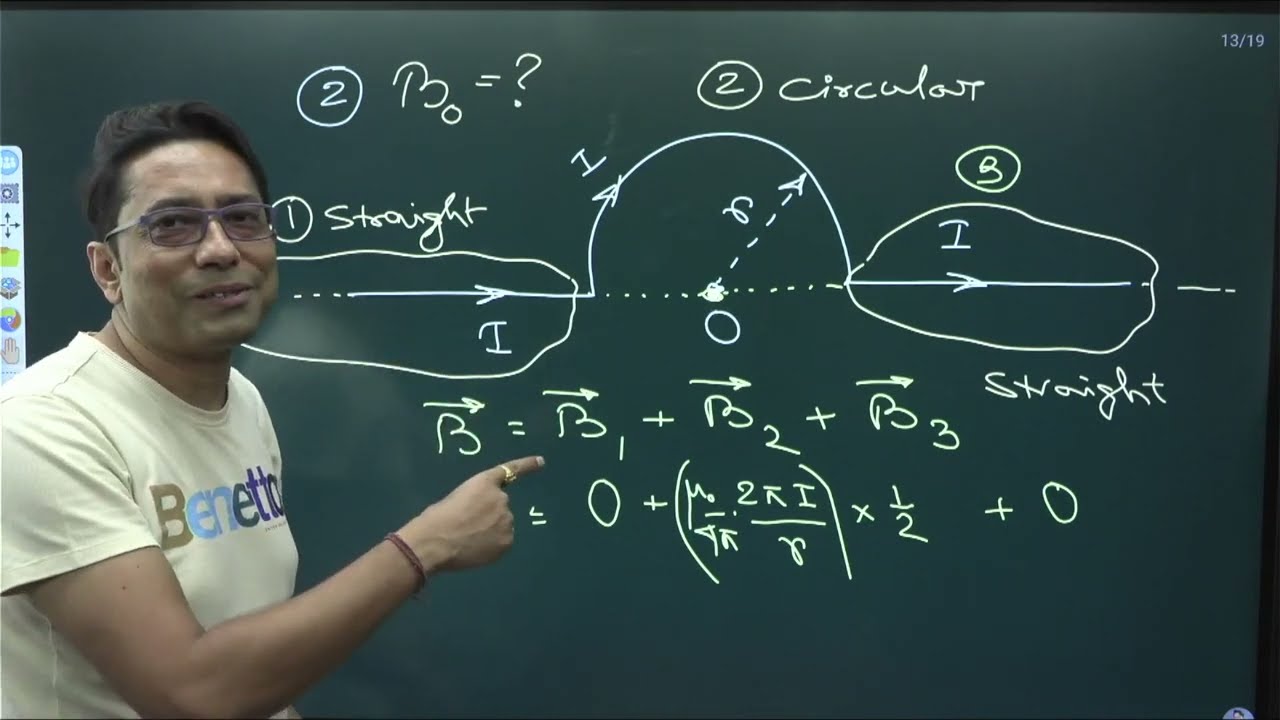 13/19
② B₀ = ?
② Circular
I
③
① Straight
r
I
I
O
Straight
B⃗ = B⃗₁ + B⃗₂ + B⃗₃
= 0 + (μ₀/4π · 2πI/r) × 1/2 + 0
Benetto